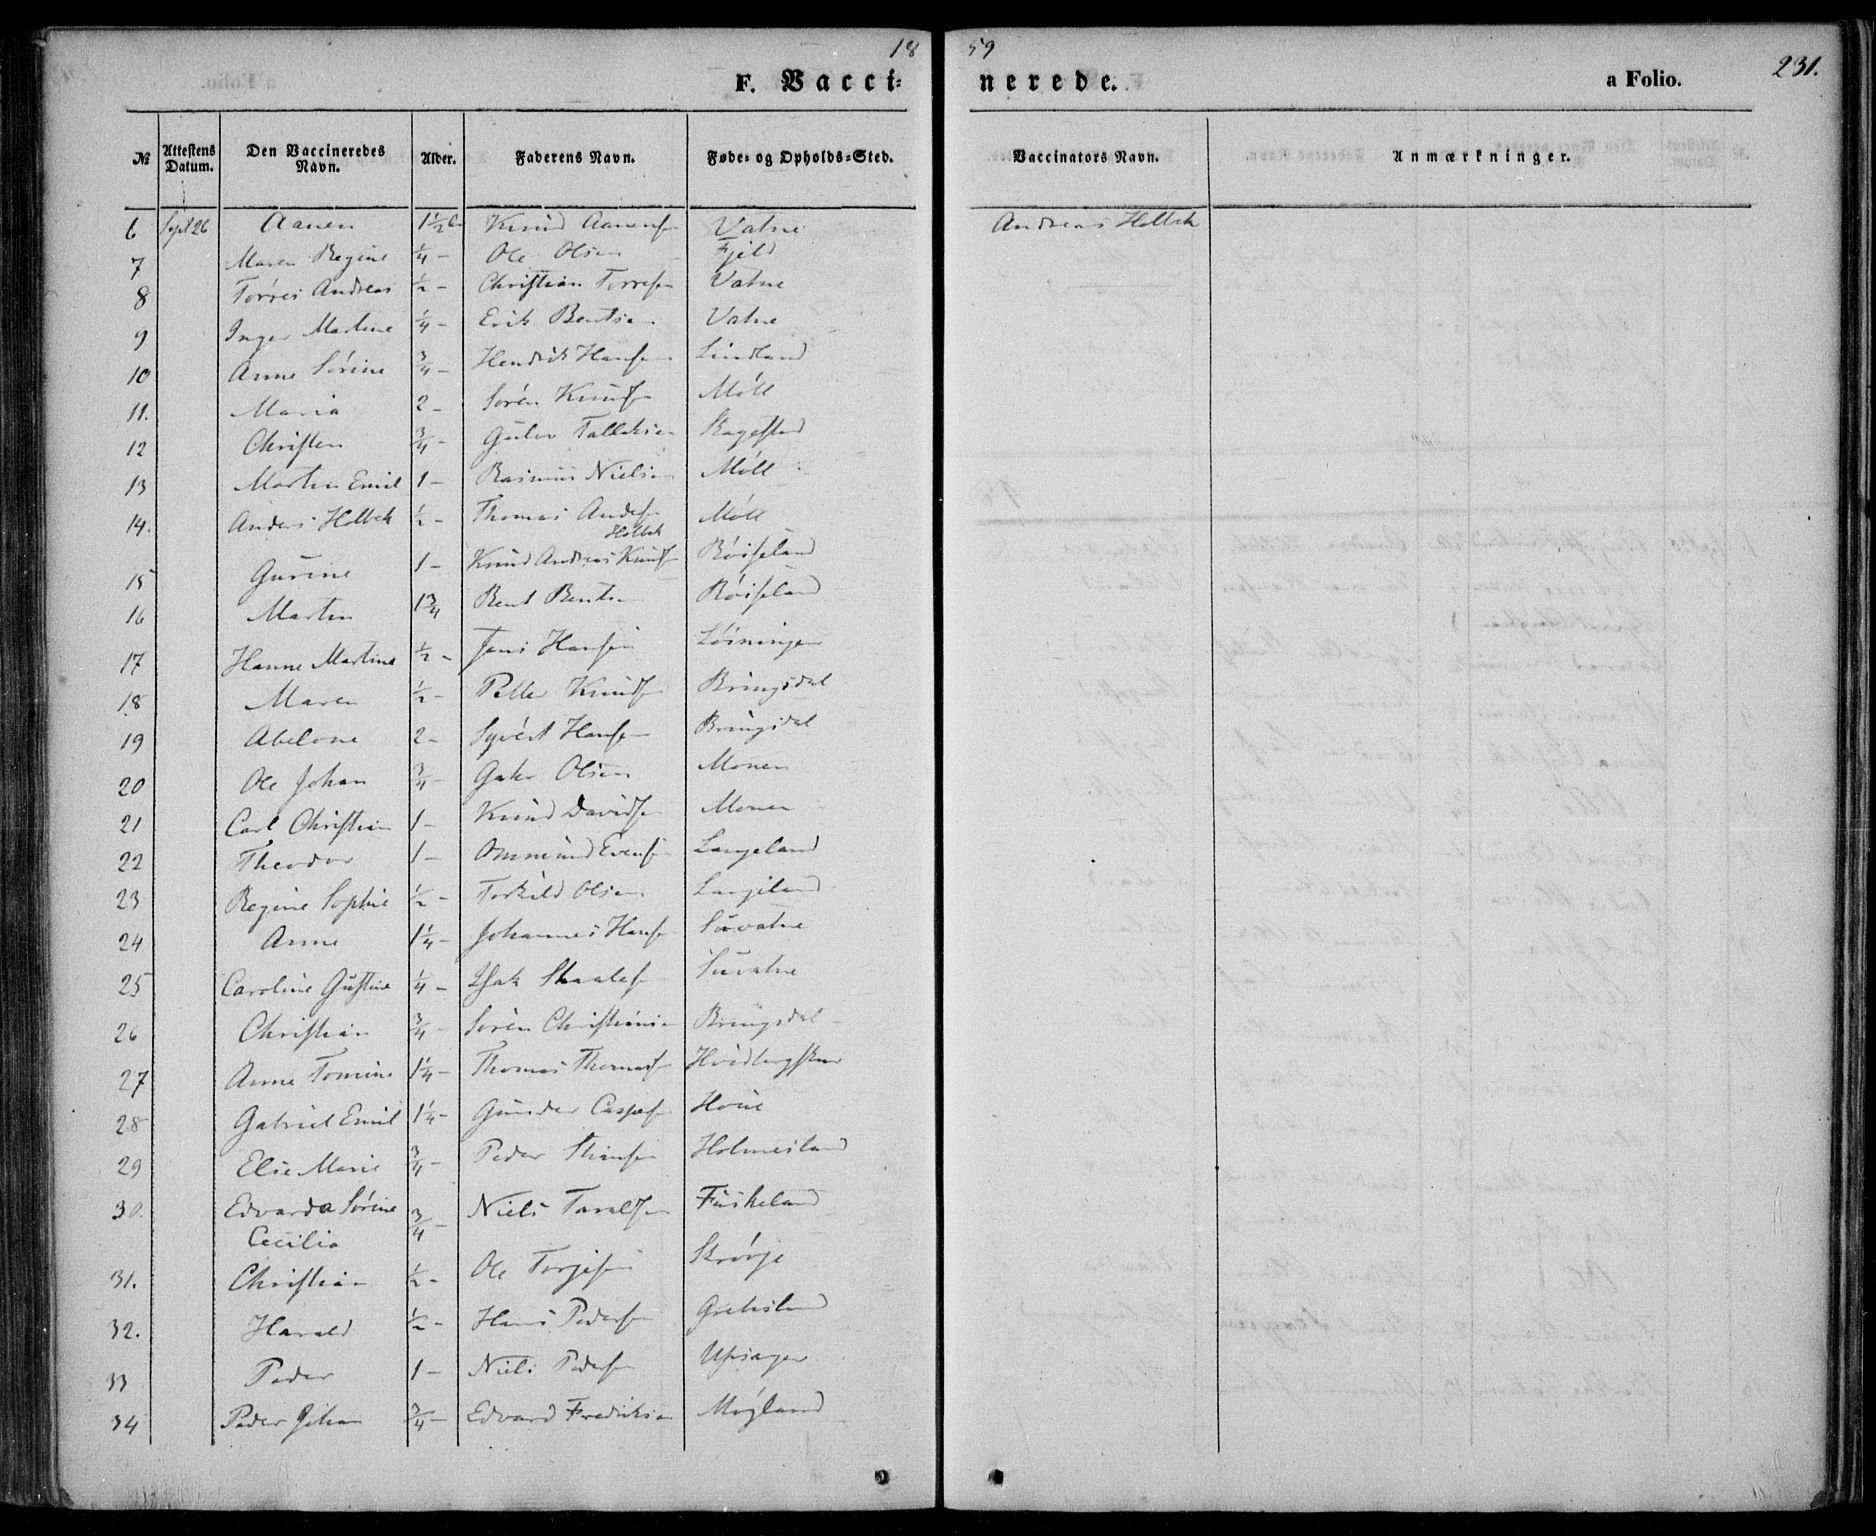 18 59
231.
F. Vacci- nerede. a Folio.
№ Attestens Datum. Den Vaccineredes Navn. Alder. Faderens Navn. Føde- og Opholds-Sted. Vaccinators Navn. Anmærkninger.
6 Sept 26 Aanen 1½ Knud Aanens Vatne Andreas Holbek
7 Maren Regine ¼ - Ole Olsen Fjeld
8 Törres Andreas ½ - Christian Torresen Vatne
9 Inger Martine ¼ - Erik Bentsen Vatne
10 Anne Sörine ¾ - Hendrik Hansen Lindland
11. Maria 2 - Sören Knuds Möll
12 Christen ¾ - Gulov Tallaksen Skagestad
13 Martin Emil 1 - Rasmus Nielsen Möll
14. Anders Holbek ½ - Thomas Anders Holbek Möll
15 Gurine 1 - Knud Andreas Knuds Röiseland
16 Martin 1¾ Bent Bentsen Röiseland
17 Hanne Martine ½ - Jens Hansen Lösningen
18 Maren ½ - Petter Knudsen Bringsdal
19 Abelone 2 - Syvert Hansen Bringsdal
20 Ole Johan ¾ - Olsen Monen
21 Carl Christian 1 - Knud Davidsen Monen
22 Theodor 1 - Ommund Evensen Langeland
23 Regine Sophie ½ - Torkild Olsen Langeland
24 Anne 1¼ - Johannes Hansen
25 Caroline Gustine ¼ - Isak
26 Christian ¾ - Sören Christiansen Bringsdal
27 Anne Tomine 1¼ - Thomas Thomas
28 Gabriel Emil 1¼ - Gunder Caspers
29 Elie Marie ¾ - Peder Holmesland
30. Edvarda Sörine ¾ - Niels Taraldsen Fuskeland
Cecilia
31. Christian ½ - Ole Torjesen
32. Harald ½ - Hans Pedersen
33 Peder 1 - Niels Pedersen
34 Peder Johan ¾ - Edvard Fredriksen Mögland